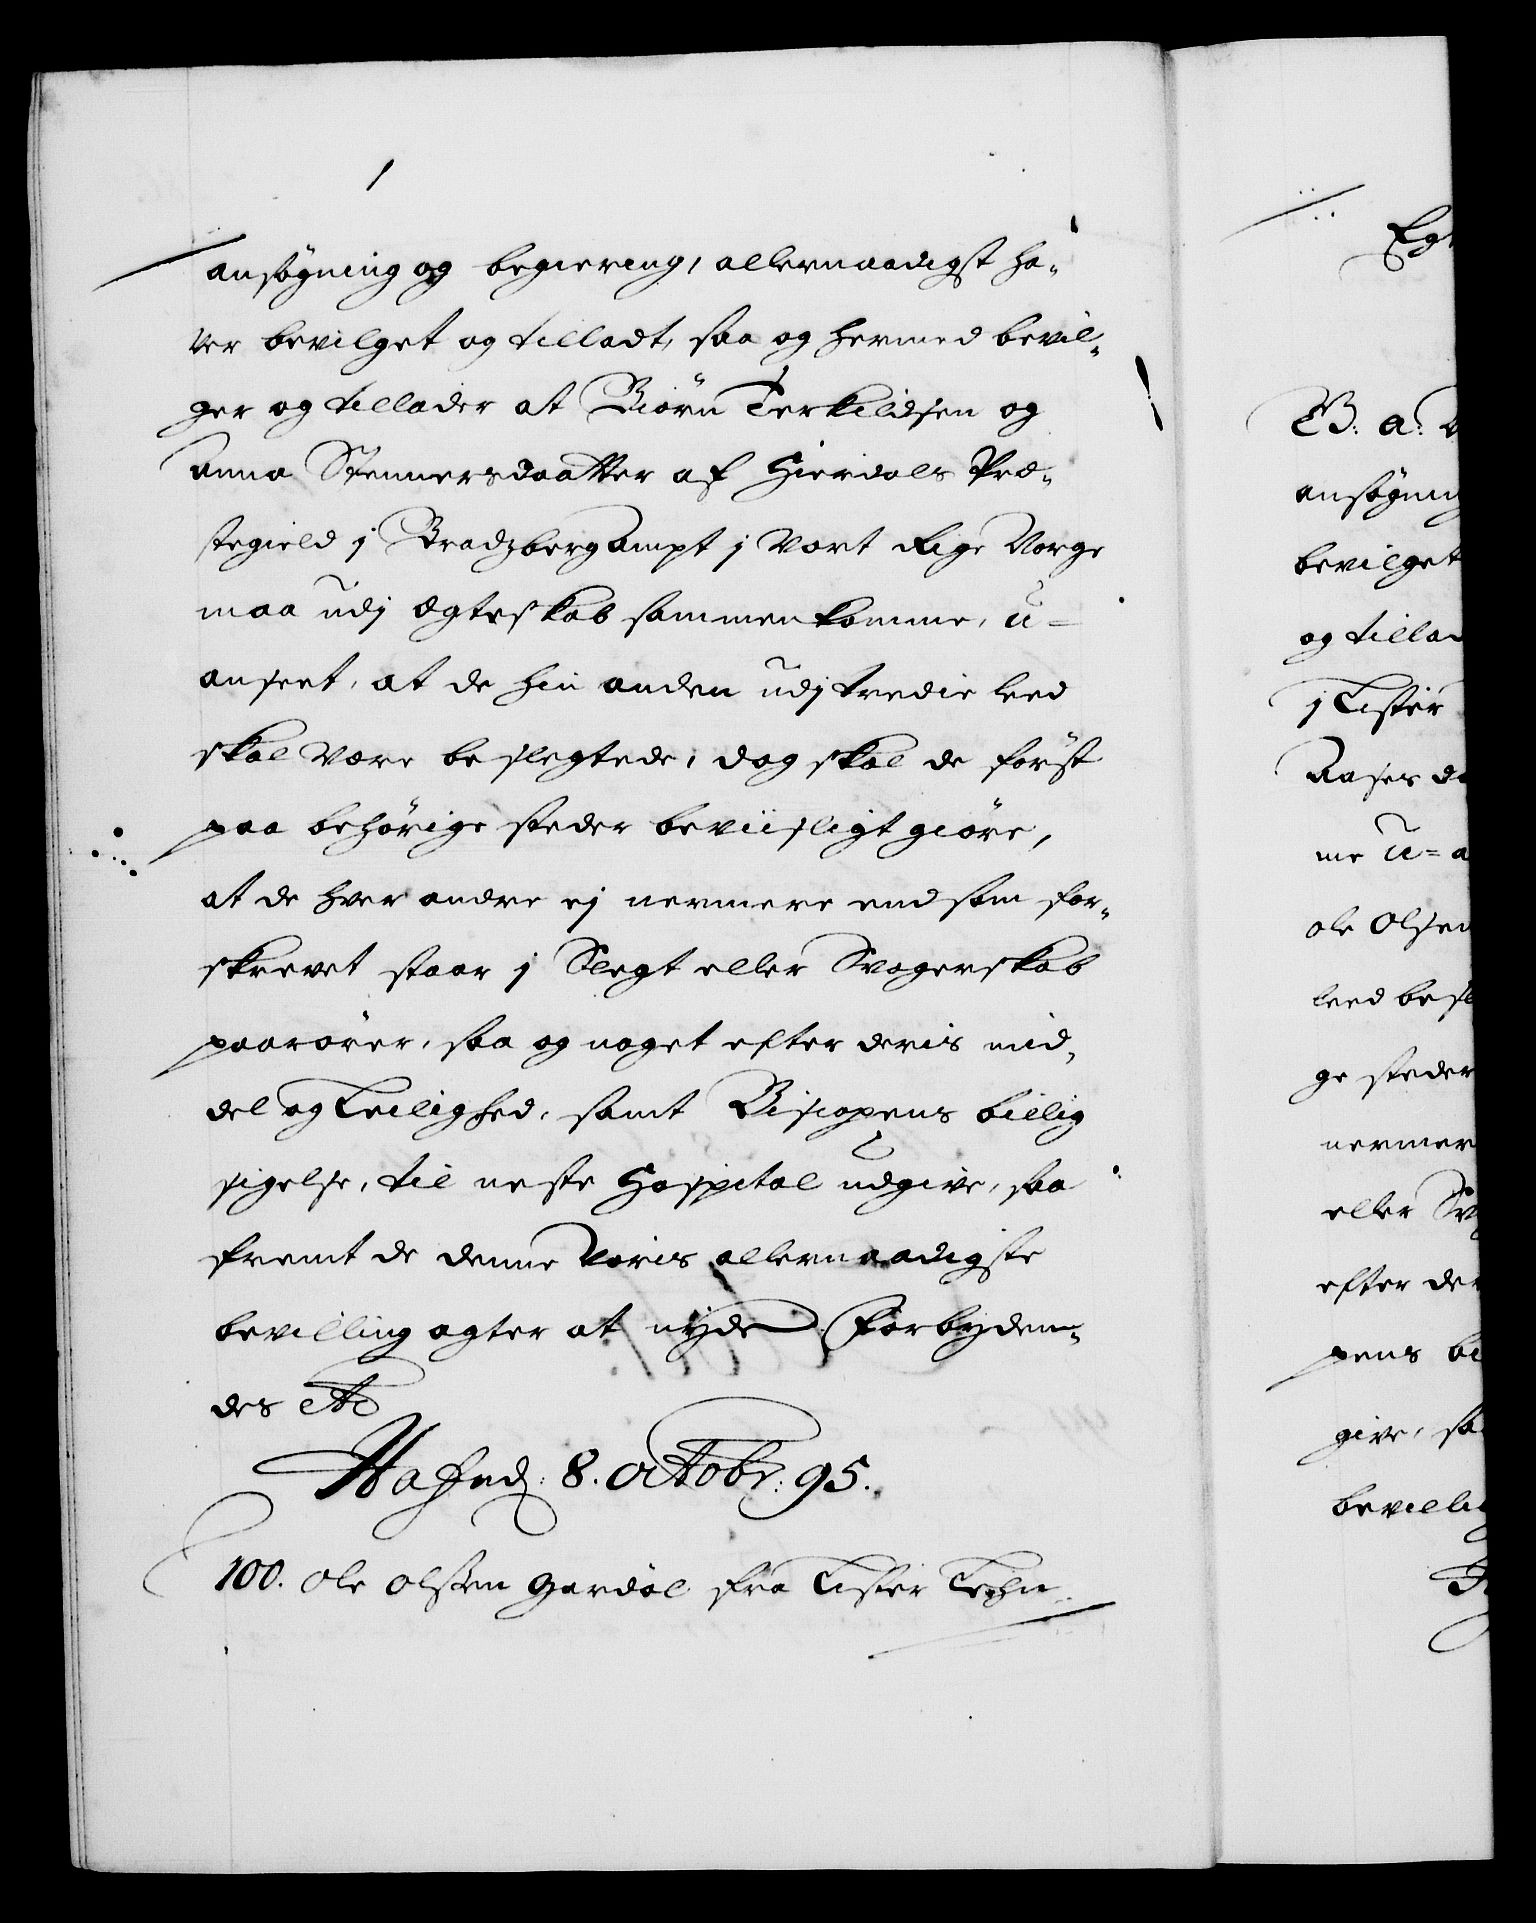 ansøgning og begiering, allernaadigst ha„
ver bevilget og tilladt, saa og hermed bevil„
ger og tillader at Biørn Terkildsen og
Anna Stennersdaatter af Hierdals Præ„
stegield j Bradzberg Ampt j Vort Rige Norge
maa udj Ægteskab sammenkomme, u=
anseet, at de hin anden udj tredie leed
skal være beslegtede, dog skal de først
paa behørige steder beviisligt giøre,
at de hver andre ej nermere end som for„
skrevet staar j Slegt eller Svogerskab
paarører, saa og noget efter deris mid„
del og Leilighed, samt Biscopens billig
sigelse, til neste Hospital udgive, saa
fremt de denne Voris allernaadigste
bevilling agter at nyde. Forbyden„
des etc
Hafnd: 8. octobr: 95.
100. Ole Olssen Gardøl fra Lister Lehn
Eg
B: a: V
ansøgning
bevilget
og tillad
j Lister
Aasers da
me u=a
ole Olsen
leed besl
ge steder
nermer
eller Sv
efter der
pens bi
give, sa
bevillig